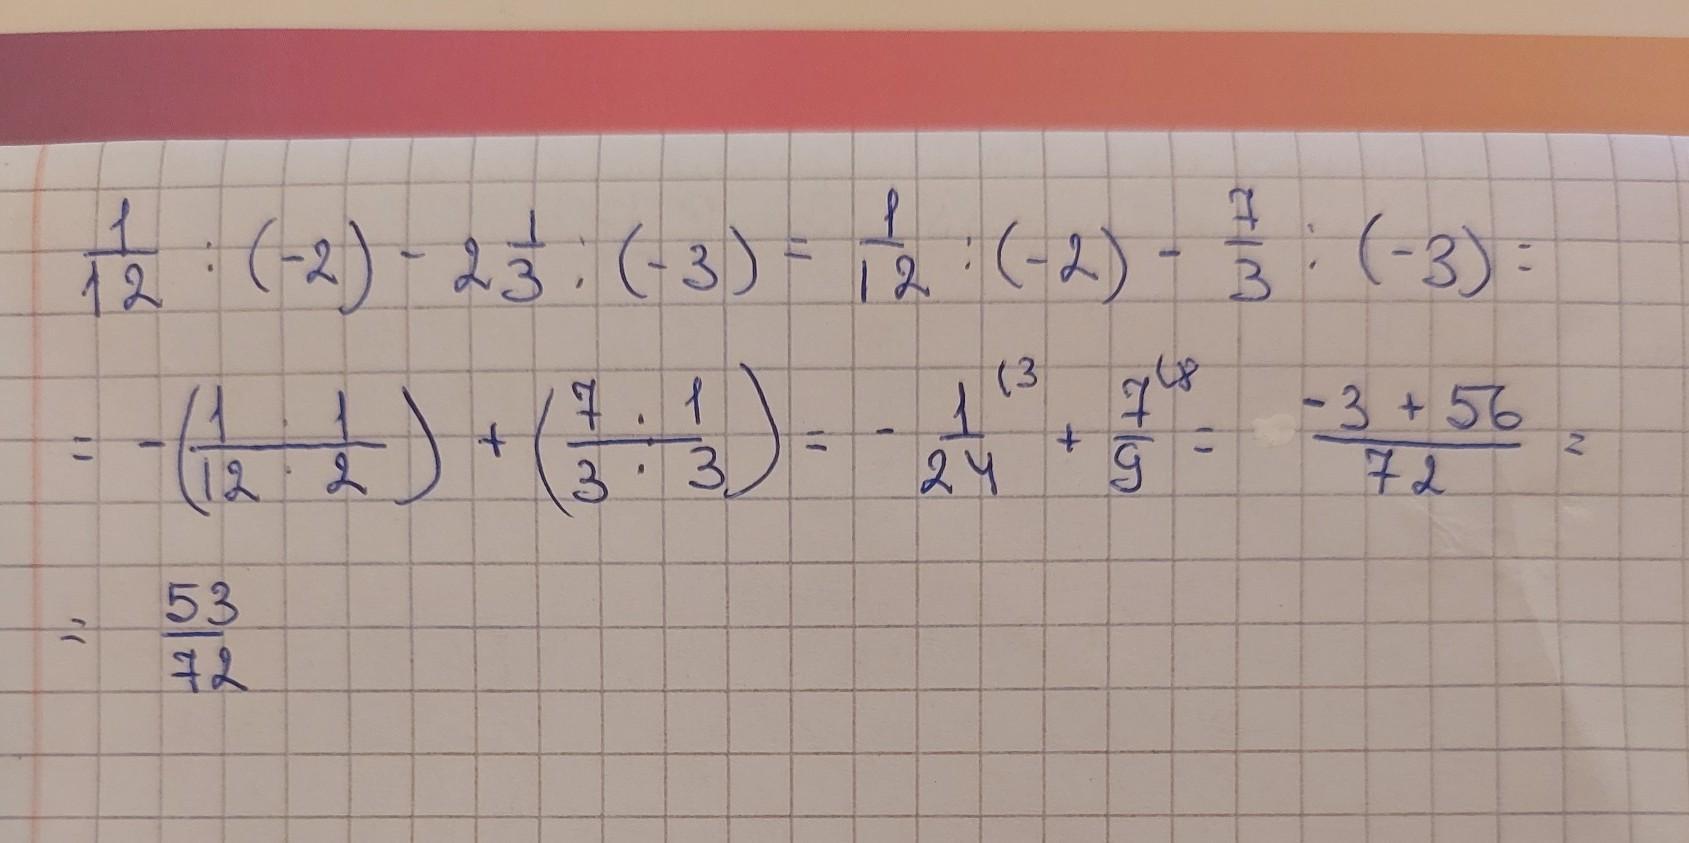 1/12 : (-2) - 2 1/3 : (-3) = 1/12 : (-2) - 7/3 : (-3) =
= -(1 · 1 / 12 · 2) + (7 · 1 / 3 · 3) = - 1/24 (3 + 7/9 (8 = -3 + 56 / 72 =
= 53/72